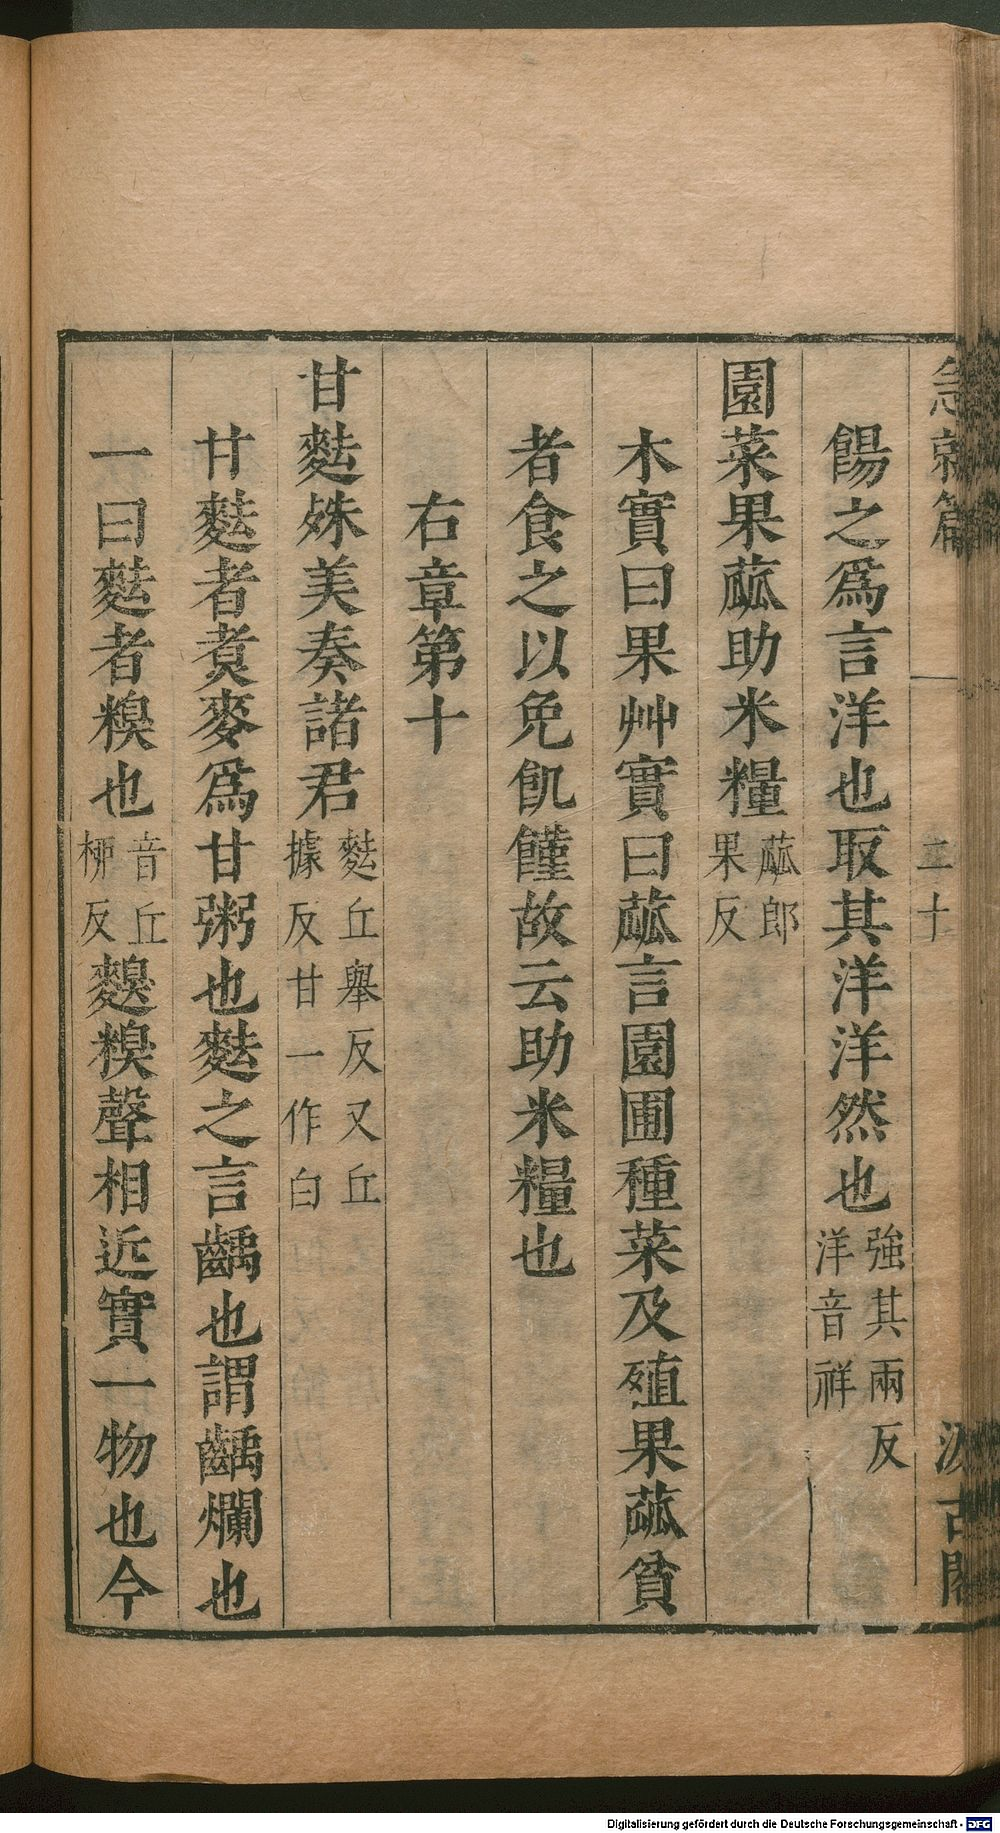 急就篇 二十 汲古閣
餳之爲言洋也取其洋洋然也強其兩反洋音祥
園菜果蓏助米糧蓏郎果反
木實曰果艸實曰蓏言園圃種菜及殖果蓏貧
者食之以免飢饉故云助米糧也
右章第十
甘麮殊美奏諸君麮丘舉反又丘據反甘一作白
甘麮者煮麥爲甘粥也麮之言齲也謂齲爛也
一曰麮者糗也音丘柳反麮糗聲相近實一物也今
Digitalisierung gefördert durch die Deutsche Forschungsgemeinschaft - DFG